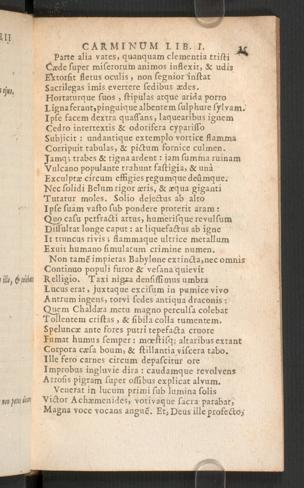 CARMINUM LIB. I.
Parte alia vates, quanquam clementia tristi
Cæde super miserorum animos inflexit, & udis
Extorsit fletus oculis, non segnior instat
Sacrilegas imis evertere sedibus ædes.
Hortaturque suos, stipulas atque arida porro
Ligna ferant, pinguique albentem sulphure sylvam.
Ipse facem dextra quassans, laquearibus ignem
Cedro intertextis & odorifera cyparisso
Subjicit: undantique extemplo vortice flamma
Corripuit tabulas, & pictum fornice culmen.
Jamq; trabes & tigna ardent: iam summa ruinam
Vulcano populante trahunt fastigia, & unà
Exculptæ circum effigies regumque deûmque.
Nec solidi Belum rigor æris, & æqua giganti
Tutatur moles. Solio dejectus ab alto
Ipse suam vasto sub pondere proterit aram:
Quo casu perfracti artus, humerisque revulsum
Dissultat longe caput: at liquefactus ab igne
It truncus rivis; flammaque ultrice metallum
Exuit humano simulatum crimine numen.
Non tamē impietas Babylone extincta, nec omnis
Continuo populi furor & vesana quievit
Relligio. Taxi nigra densissimus umbra
Lucus erat, juxtaque excisum in pumice vivo
Antrum ingens, torvi sedes antiqua draconis:
Quem Chaldæa metu magno perculsa colebat
Tollentem cristas, & sibila colla tumentem.
Speluncæ ante fores putri tepefacta cruore
Fumat humus semper: mœstisq; altaribus extant
Corpora cæsa boum, & stillantia viscera tabo.
Ille fero carnes circum depascitur ore
Improbus ingluvie dira: caudamque revolvens
Arrosis pigram super ossibus explicat alvum.
Venerat in lucum primi sub lumina solis
Victor Achæmenides, votivaque sacra parabat,
Magna voce vocans anguē. Et, Deus ille profecto;